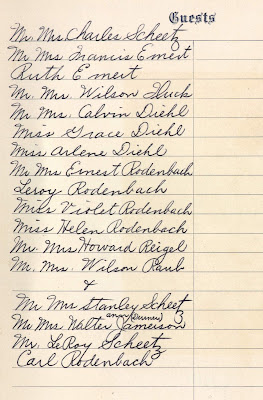 Guests
Mr. Mrs. Charles Scheetz
Mr Mrs Francis Emert
Ruth Emert
Mr. Mrs. Wilson Fluck
Mr Mrs. Calvin Diehl
Miss Grace Diehl
Miss Arlene Diehl
Mr Mrs Ernest Rodenbach
Leroy Rodenbach
Miss Violet Rodenbach
Miss Helen Rodenbach
Mr. Mrs Howard Reigel
Mr. Mrs. Wilson Raub
&
Mr Mrs Stanley Scheetz
Mr Mrs. Walter Jamerson
Mr. LeRoy Scheetz
Carl Rodenbach